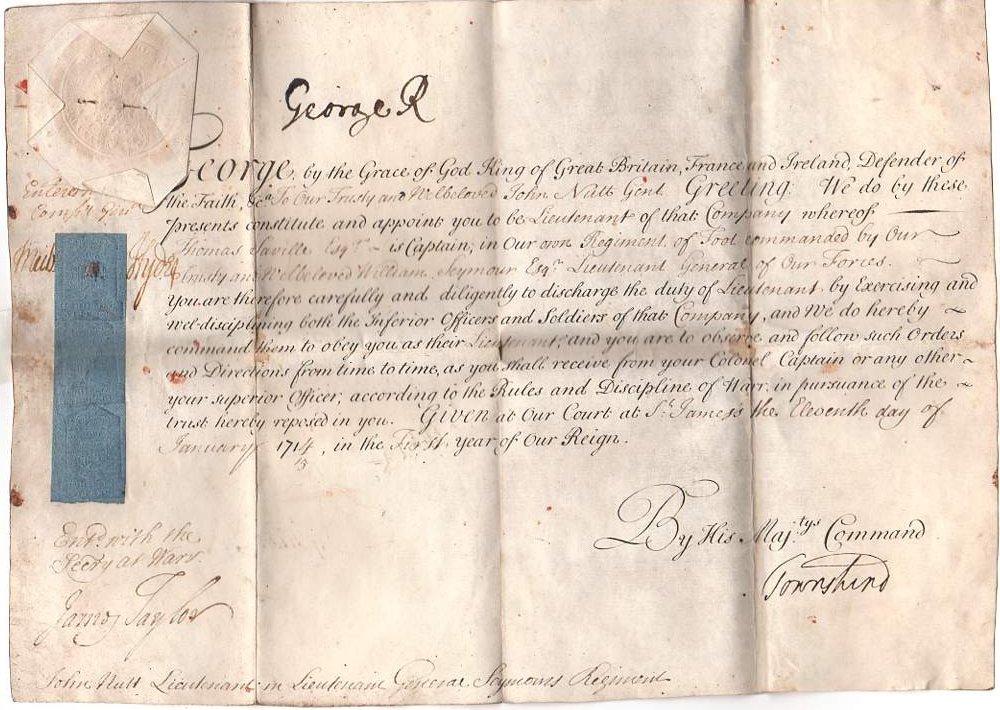 George R
George, by the Grace of God King of Great Britain, France and Ireland, Defender of
the Faith, &c. To Our Trusty and Welbeloved John Nutt Gent Greeting: We do by these
Presents constitute and appoint you to be Lieutenant of that Company whereof
Thomas Saville Esqr. is Captain, in Our own Regiment of Foot commanded by Our
Trusty and Welbeloved William Seymour Esqr. Lieutenant General of Our Forces.
You are therefore carefully and diligently to discharge the duty of Lieutenant by Exercising and
wel-disciplining both the Inferior Officers and Soldiers of that Company, and We do hereby
command them to obey you as their Lieutenant, and you are to observe and follow such Orders
and Directions from time to time, as you shall receive from your Colonel Captain or any other
your superior Officer, according to the Rules and Discipline of Warr, in pursuance of the
trust hereby reposed in you. Given at Our Court at St. James's the Eleventh day of
January 1714, in the First year of Our Reign.
By His Majtys Command
Townshend
Entd. with the
Secry at Warr.
James Taylor
John Nutt Lieutenant in Lieutenant General Seymours Regiment